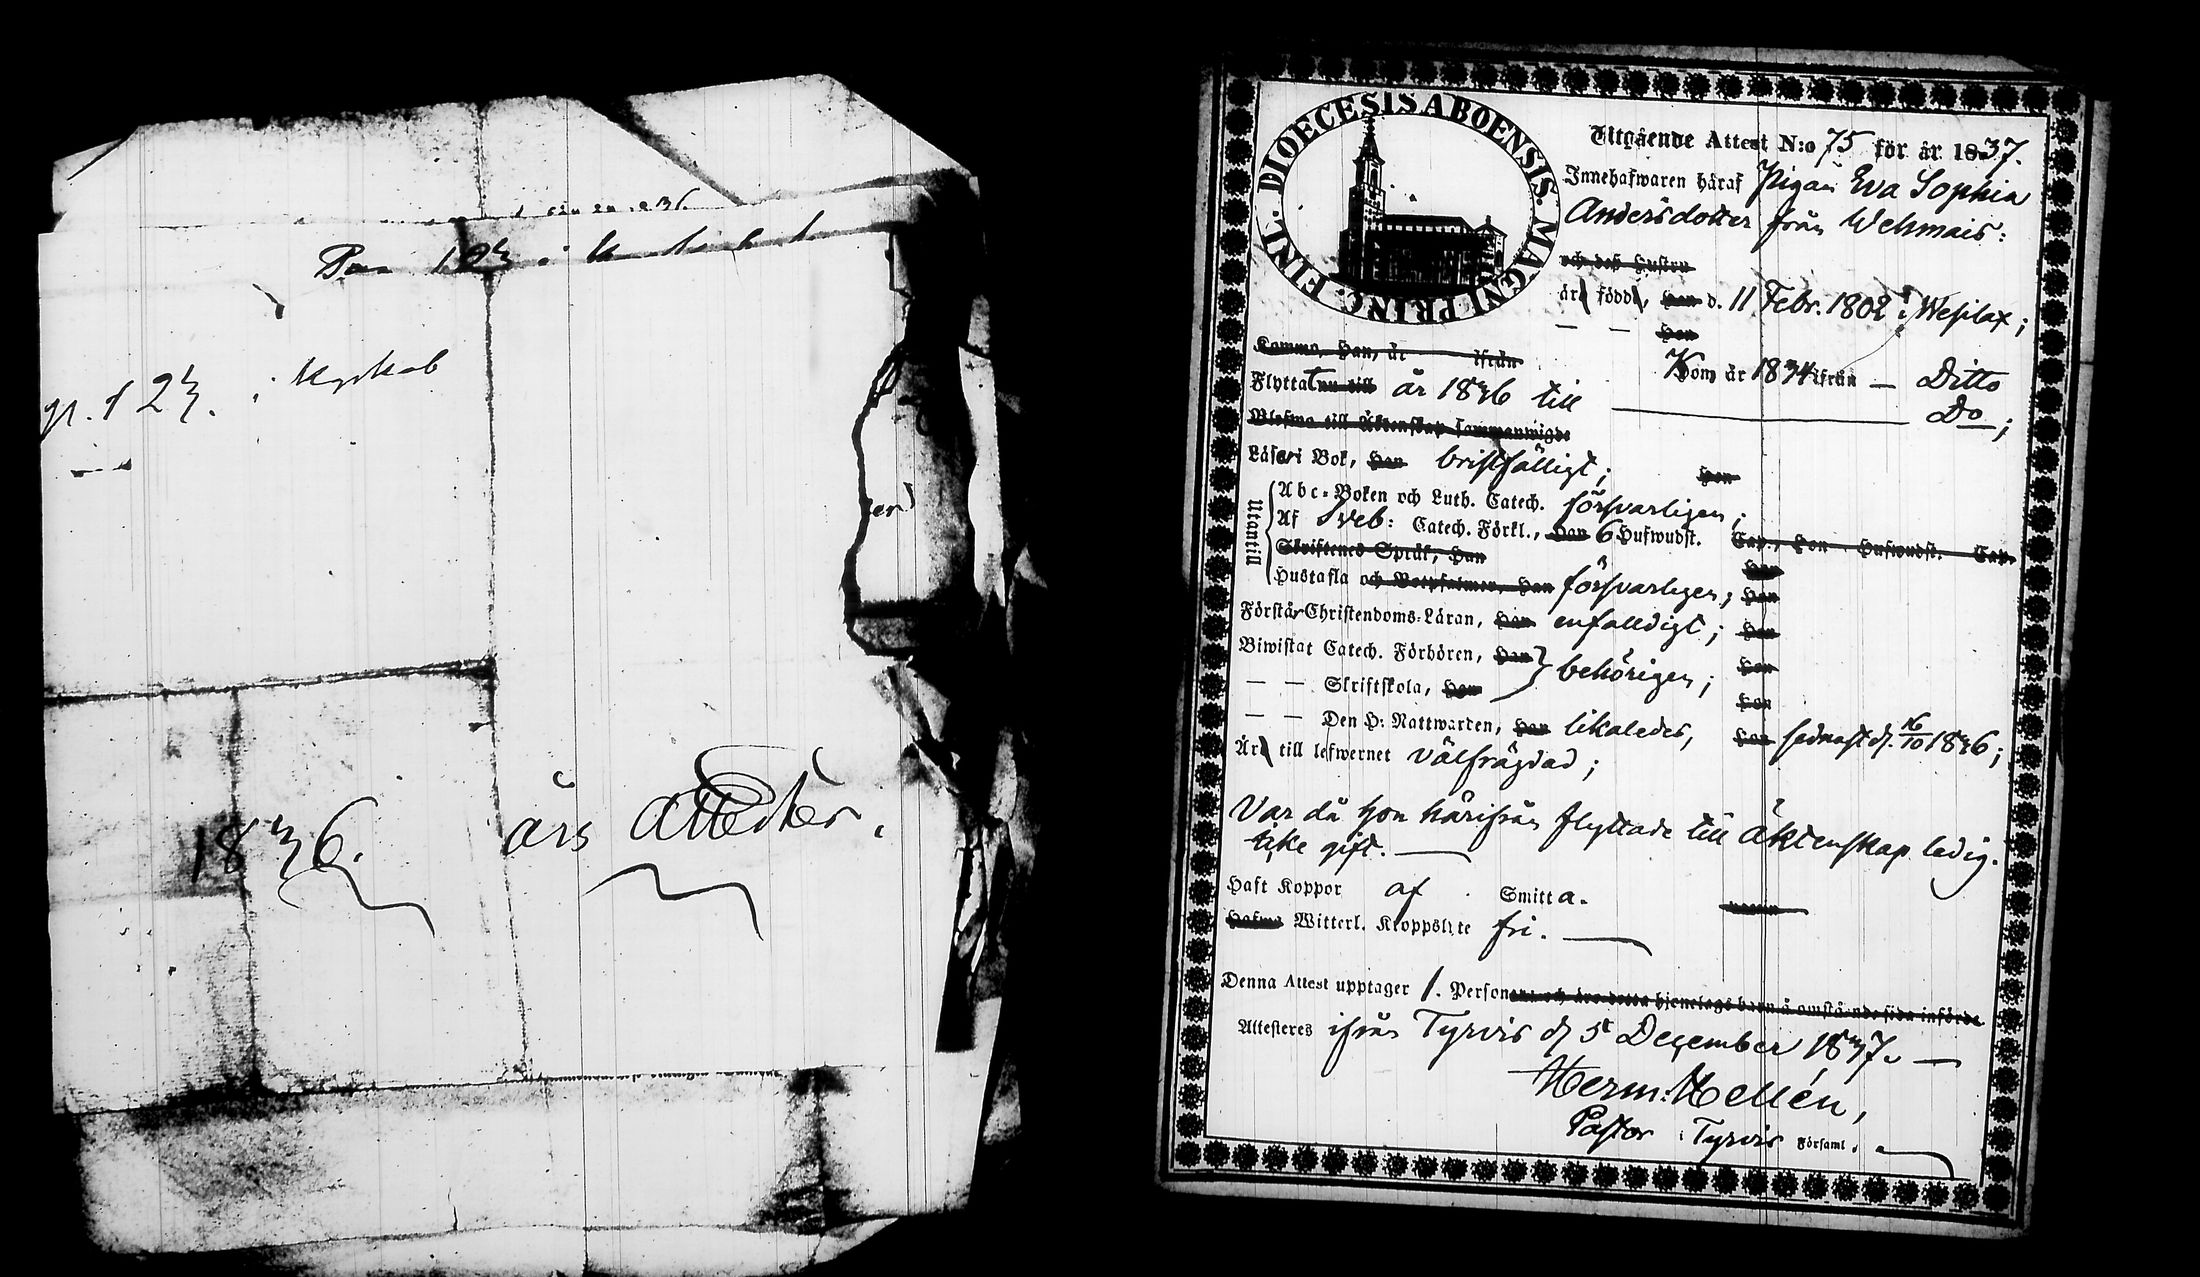 123. i kyrkob
1836. års attester.
DIOECESIS ABOENSIS. MAGNI PRINC. FINL.
Utgående Attest N:o 75 för år 1837.
Innehafwaren häraf Pigan Eva Sophia
Andersdotter från Wehmais:
och deß hustru
äro född, han d. 11 Febr. 1802 i Wesilax;
— — hon
Komme, han, år ifrån
Kom år 1834 ifrån — Ditto
Flyttat nu till år 1836 till Do;
Blefwo till Äktenskap sammanwigde
Läser i Bok, han bristfälligt; hon
Utantill
Abc-Boken och Luth. Catech. försvarligen;
Af Sveb: Catech. Förkl., han 6 Hufwudst. Cap., hon Hufwudst. Cap.
Skriftenes Språk, han hon
Hustafla och Botpsalmen, han försvarligen; hon
Förstår Christendoms-Läran, han enfalldigt; hon
Biwistat Catech. Förhören, han behörigen; hon
— — Skriftskola, han hon
— — Den H: Nattwarden, han likaledes, hon sednast d. 16/10 1836;
Äro till lefwernet välfrägdad;
Var då hon härifrån flyttade till äktenskap ledig.
icke gift.
Haft Koppor af Smitta.
Hafwa Witterl. Kroppslyte fri.
Denna Attest upptager 1. Personer och äro detta hjonelags barn å omstående sida införde
Attesteres ifrån Tyrvis d. 5 December 1837.
Herm: Hellén,
Pastor i Tyrvis Församl.